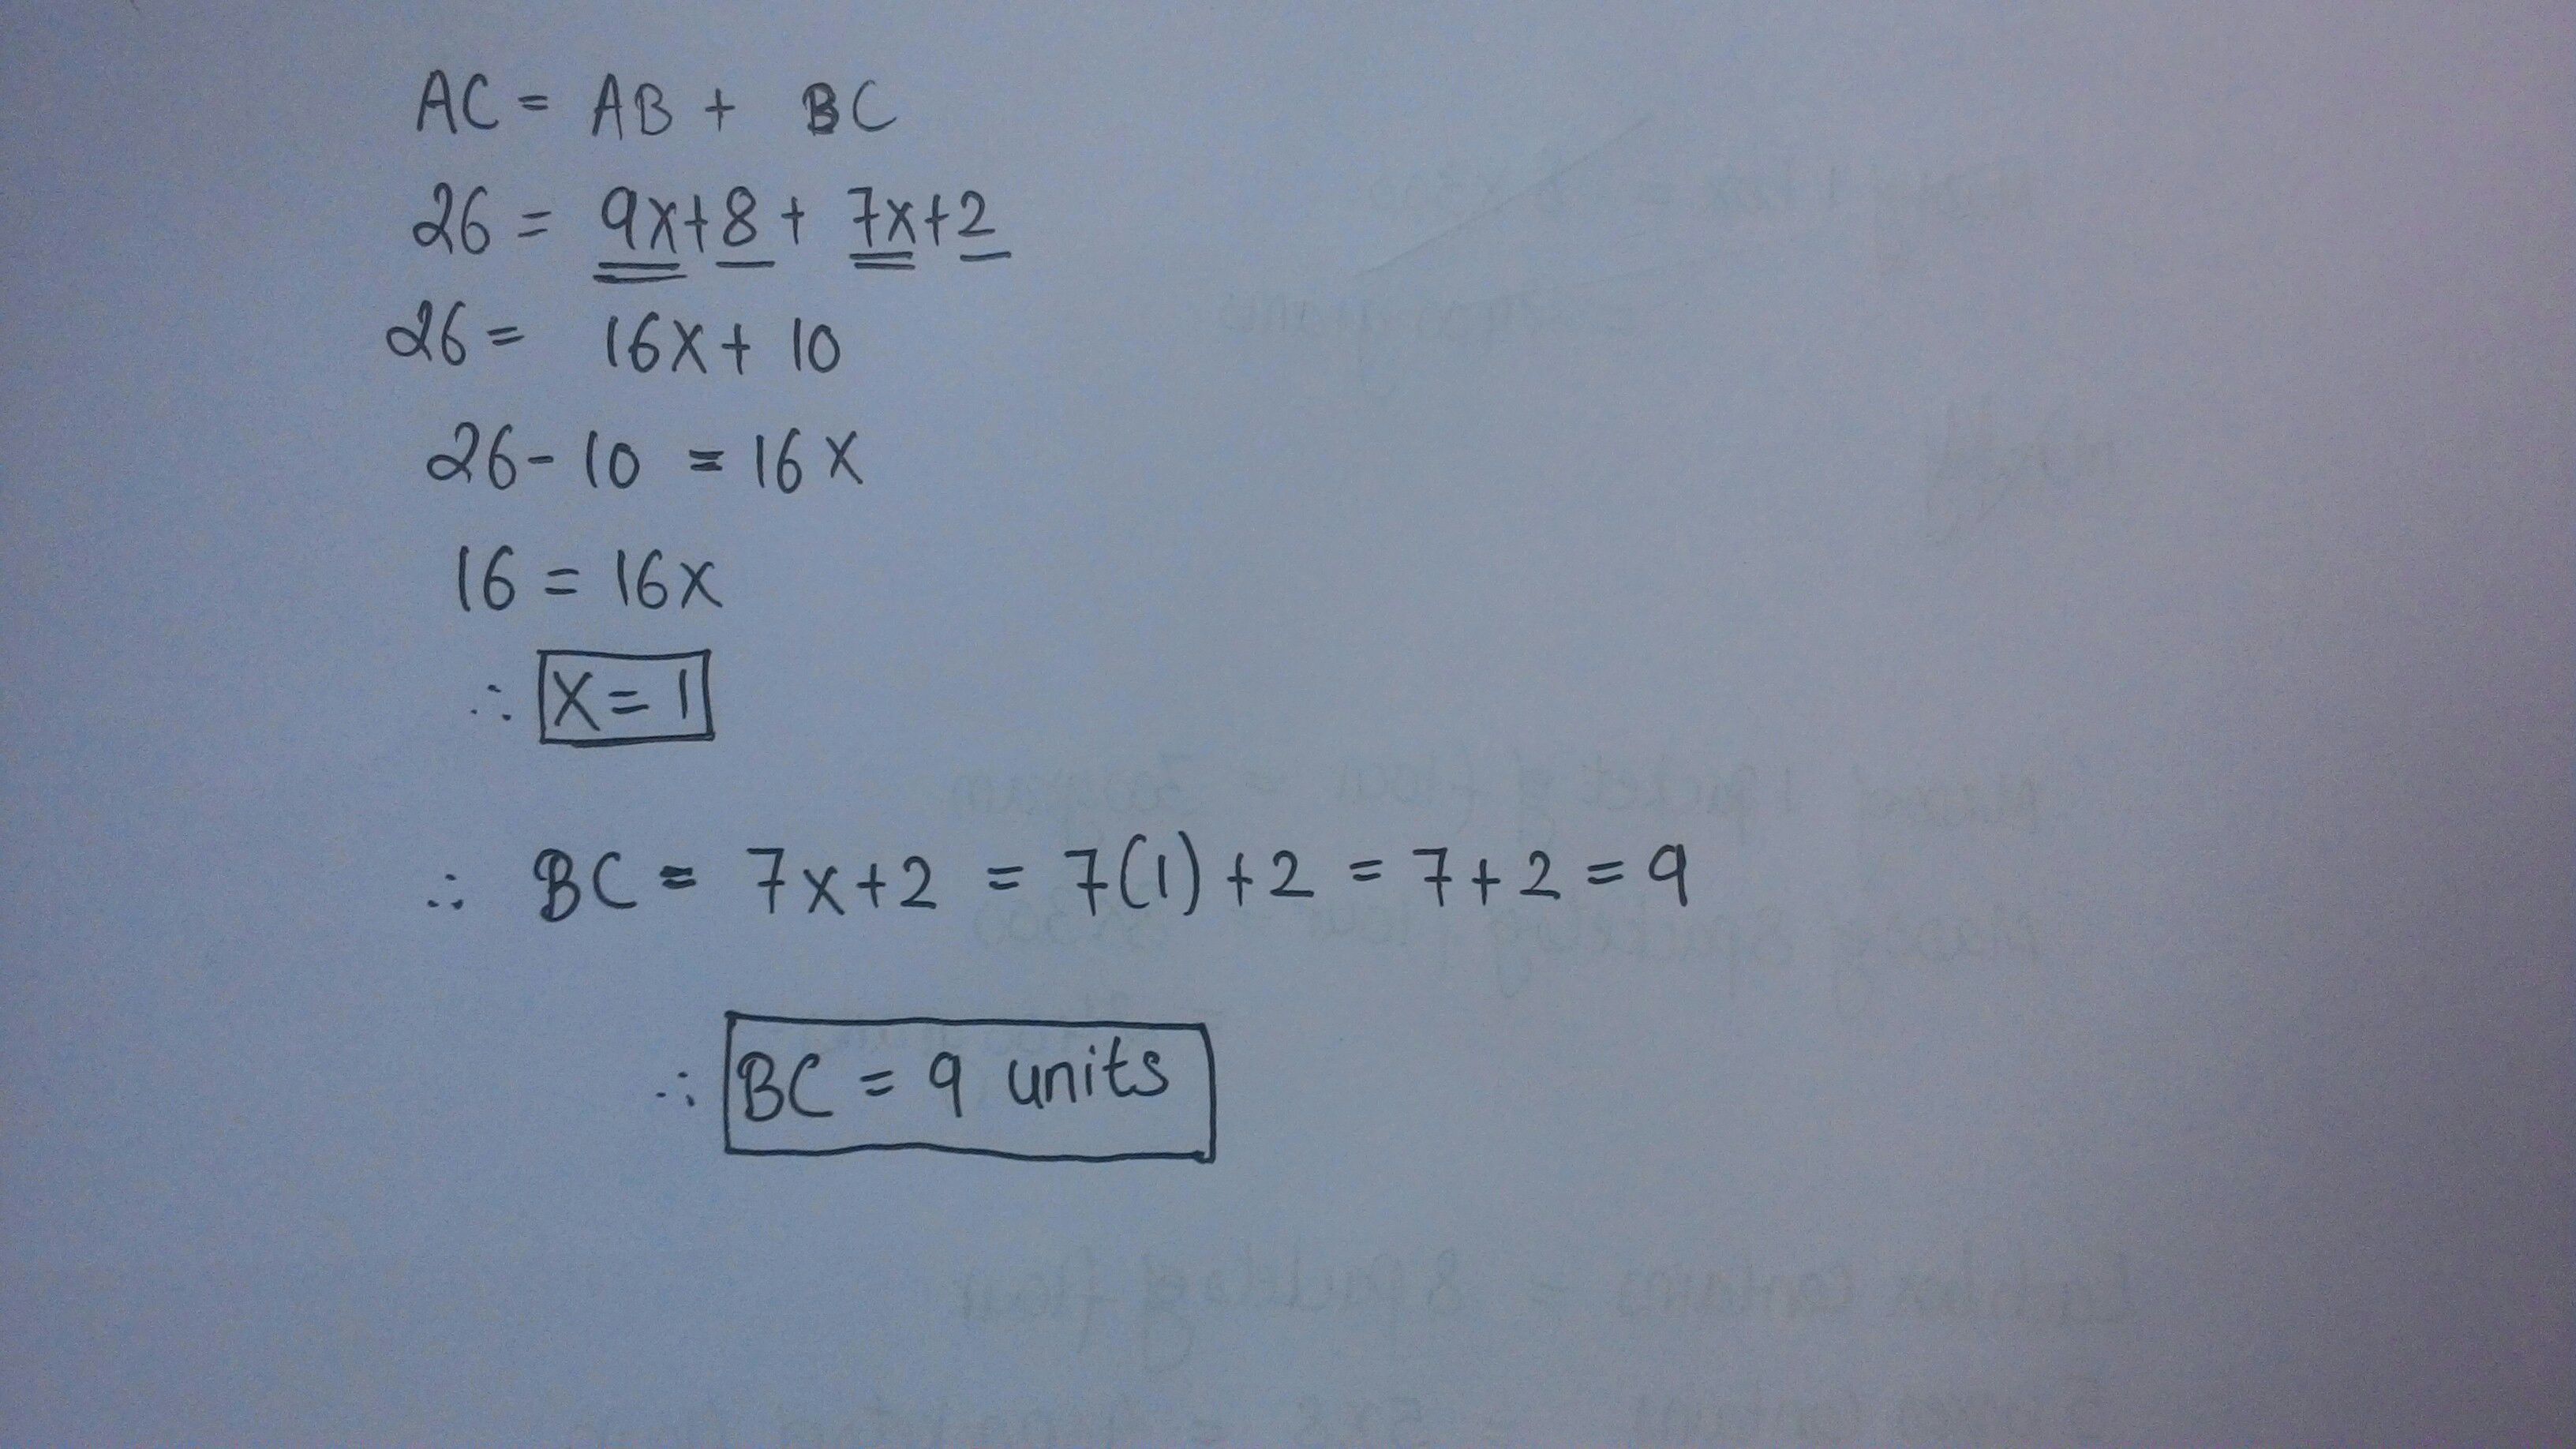 AC = AB + BC
26 = 9x+8 + 7x+2
26 = 16x + 10
26 - 10 = 16x
16 = 16x
∴ x = 1
∴ BC = 7x+2 = 7(1)+2 = 7+2 = 9
∴ BC = 9 units